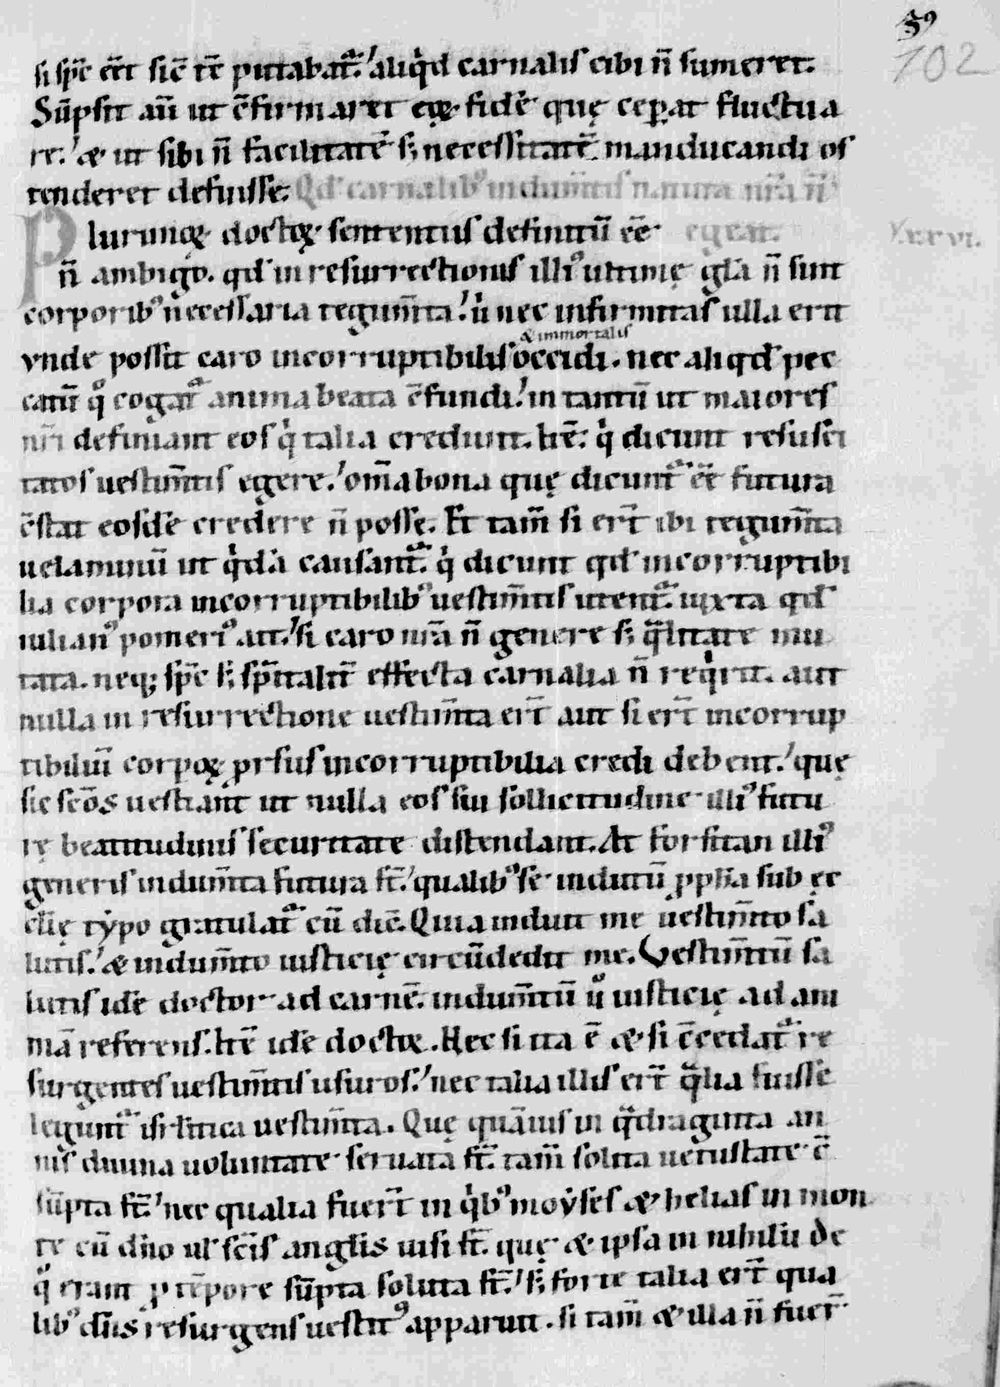 59
102
si sp̄c eēt sic̄ te putabat᷑. aliqͥd carnalis cibi n̄ sumeret.
Sūpsit aū ut c̄firmaret eoꝝ fidē que ceꝑat fluctua
re. & ut sibi n̄ facilitatē sꝫ necessitatē manducandi os
tenderet defuisse. Qd̄ carnalibꝰ indum̄tis natura nr̄a n̄
Plurimoꝝ doctoꝝ sententiis definitū eē egeat. xxxvi.
n̄ ambigo. qd̄ in resurrectionis illiꝰ ultimę gl̄a n̄ sint
corporibꝰ necessaria tegum̄ta. u̇ nec infirmitas ulla erit
& immortalis
vnde possit caro incorruptibilis occidi. nec aliqd̄ pec
catū qͦ cogat᷑ anima beata c̄fundi. in tantū ut maiores
nr̄i definiant eos qͥ talia credunt. h̄e. qͥ dicunt resusci
tatos uestim̄tis egere. om̄a bona quę dicunt᷑ eē futura
c̄stat eosdē credere n̄ posse. Et tam̄ si er̄t ibi tegum̄ta
uelaminū ut qͥdā causant᷑. qͥ dicunt qd̄ incorruptibi
lia corpora incorruptibilibꝰ uestim̄tis utent᷑. iuxta qd̄
iulianꝰ pomeriꝰ ait. si caro nr̄a n̄ genere sꝫ qͣlitate mu
tata. neqꝫ sp̄c sꝫ sp̄italit̄ effecta carnalia n̄ reqͥrit. aut
nulla in resurrectione uestim̄ta er̄t aut si er̄t incorrup
tibiliū corpoꝝ prsus incorruptibilia credi debent. quę
sic sc̄os uestiant ut nulla eos sui sollicitudine illiꝰ futu
rę beatitudinis securitate distendant. At forsitan illiꝰ
generis indum̄ta futura st̄. qualibꝰ se indutū ꝓph̄a sub ęc
clīę typo gratulat᷑ cū dic̄. Quia induit me uestim̄to sa
lutis. & indum̄to iusticię circūdedit me. Vestim̄tū sa
lutis idē doctor ad carnē. indum̄tū u̇ iusticię ad ani
mā referens. h̄e idē doctor. Hec si ita ē & si c̄cedat᷑ re
surgentes uestim̄tis usuros. nec talia illis er̄t qͣlia fuisse
legunt᷑ isrl̄itica uestim̄ta. Quę quāuis in qͣdraginta an
nis diuina uoluntate seruata st̄. tam̄ solita uetustate c̄
sūpta st̄. nec qualia fuer̄t in qͥbꝰ moẏses & helias in mon
te cū dn̄o ul̓ sc̄is angl̄is uisi st̄. quę & ipsa in nihilū de
qͦ erant ꝑ tēpore sūpta soluta st̄. sꝫ forte talia er̄t qua
libꝰ dn̄s resurgens uestitꝰ apparuit. si tam̄ & illa n̄ fuer̄